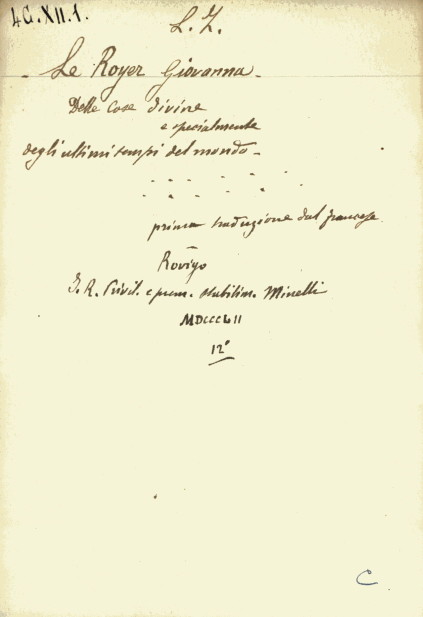 4G.XII.1.
L. Z.
Le Royer Giovanna.
Delle Cose divine
e specialmente
degli ultimi tempi del mondo -
prima traduzione dal francese
Rovigo
I. R. Privil. e prem. stabilim. Minelli
MDCCCLII
12°
C